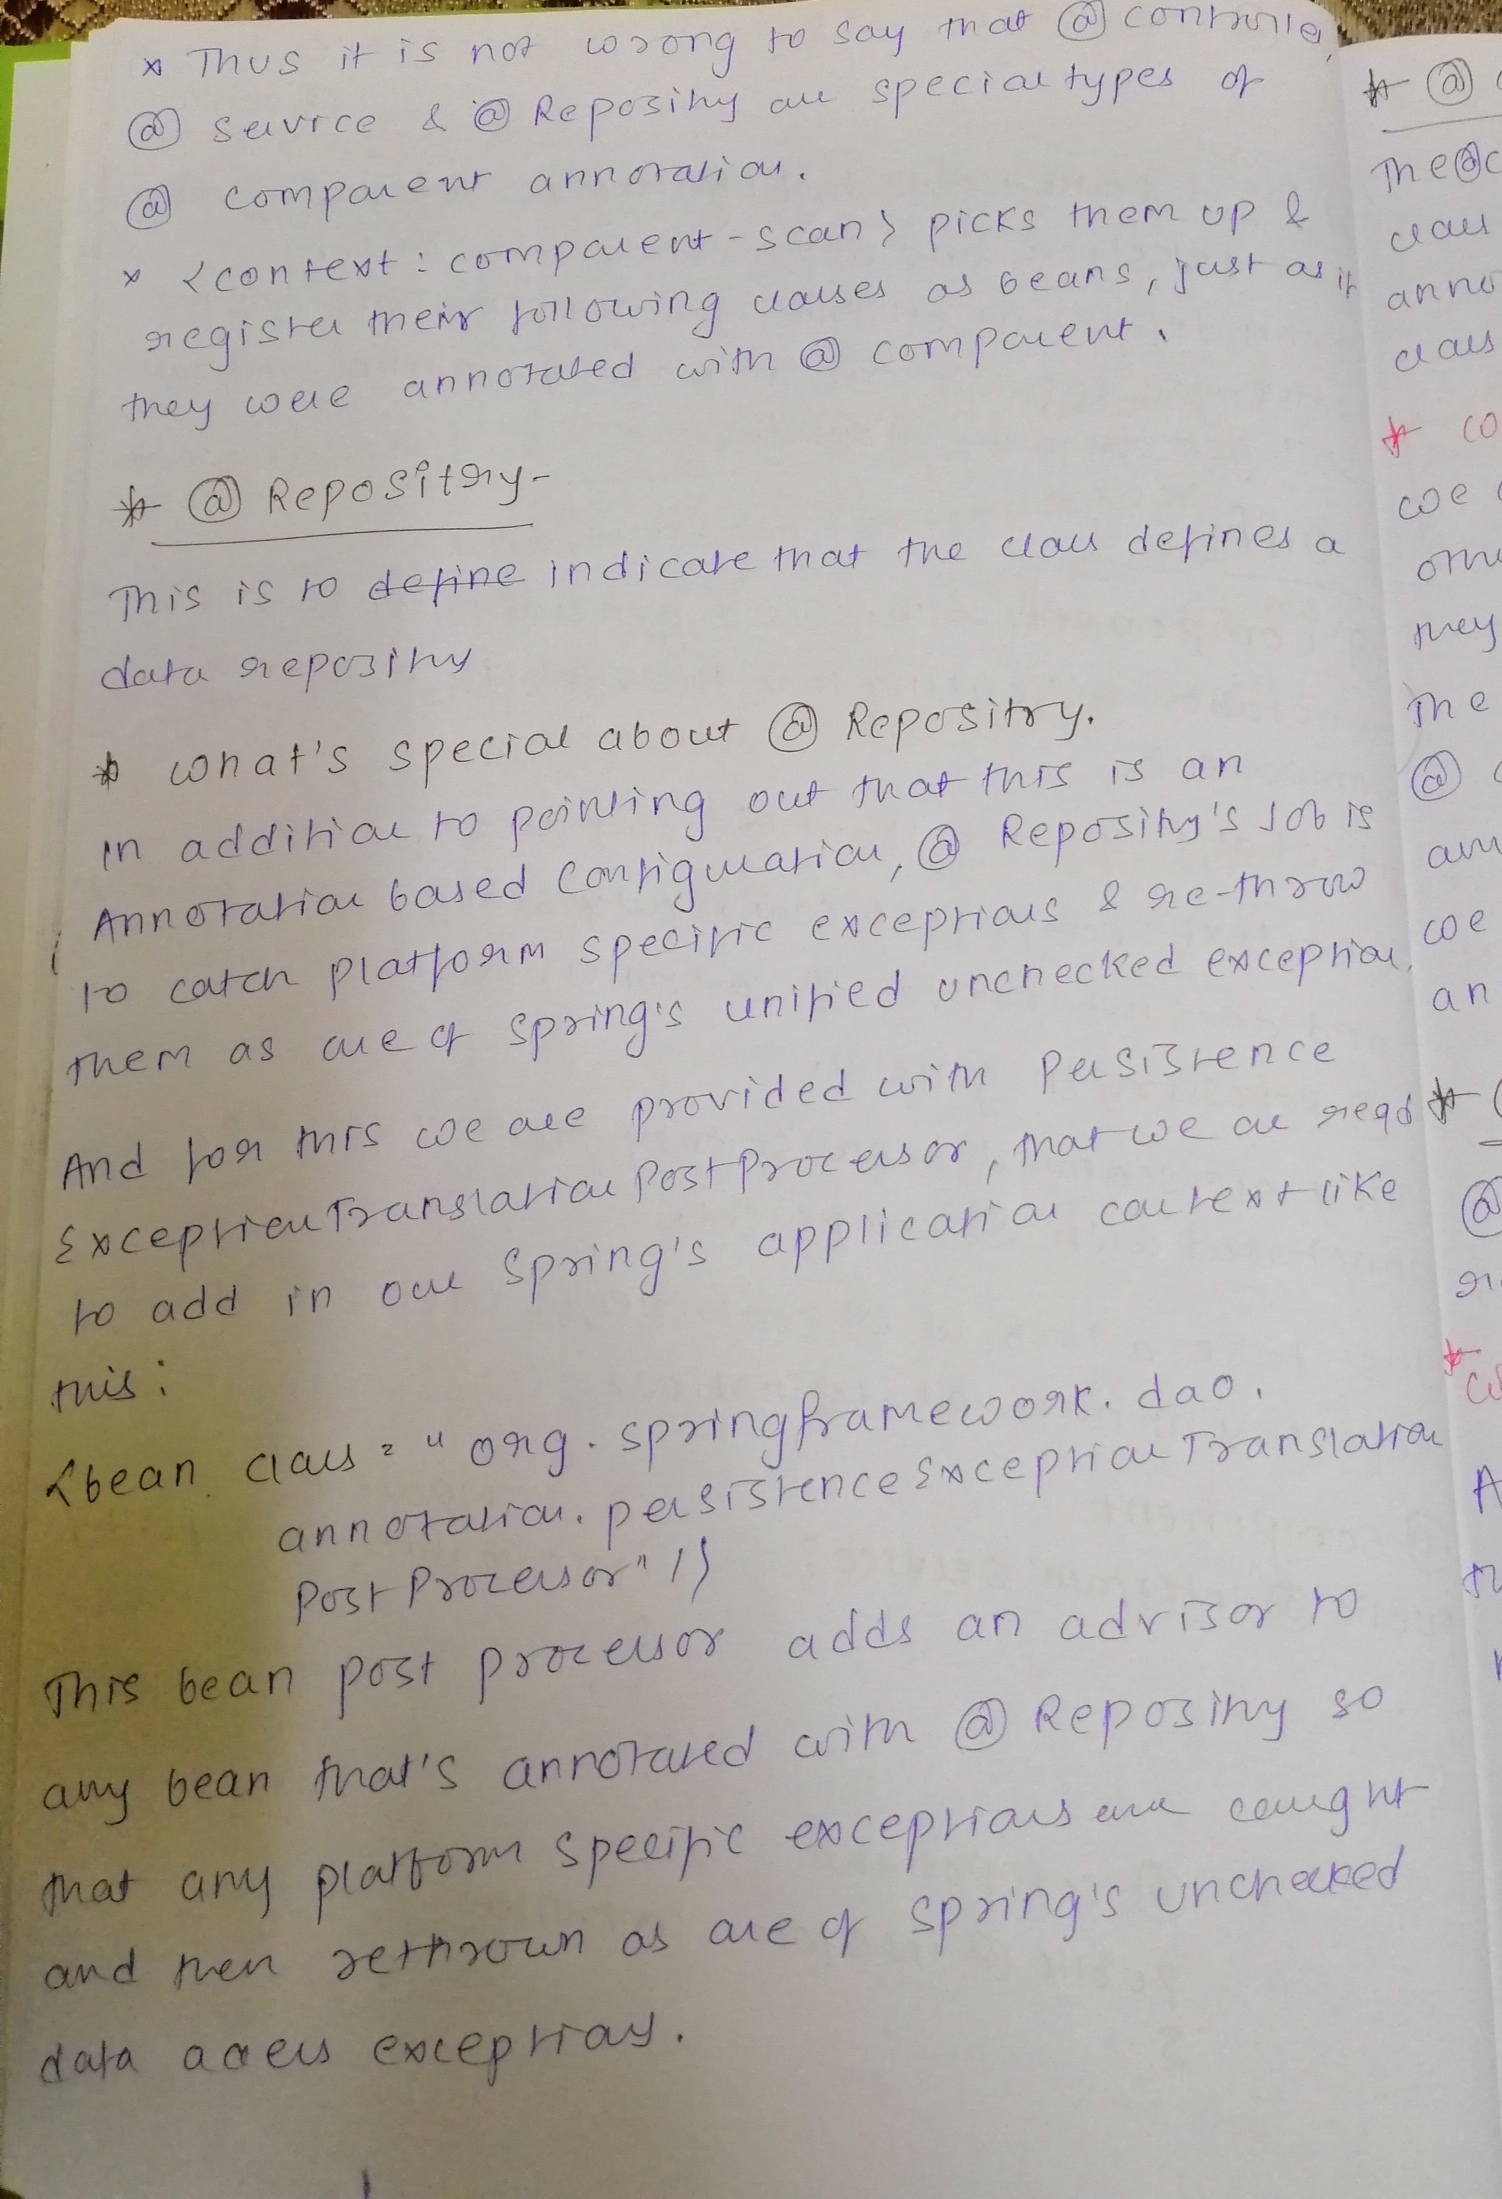 * Thus it is not wrong to say that @ controller,
@ service & @ Repositry are special types of
@ component annotation.
* <context : component-scan> picks them up &
register their following classes as beans, just as if
they were annotated with @ component.
* @ Repositry-
This is to define indicate that the class defines a
data repositry
* what's special about @ Repositry.
In addition to pointing out that this is an
Annotation based Configuration, @ Repositry's Job is
to catch platform specific exceptions & re-throw
them as one of Spring's unified unchecked exception.
And for this we are provided with Persistence
ExceptionTranslationPostProcessor, that we are reqd
to add in our Spring's application context like
this :
<bean class = "org.springframework.dao.
annotation.persistenceExceptionTranslation
PostProcessor" />
This bean post processor adds an advisor to
any bean that's annotated with @ Repositry so
that any platform specific exceptions are caught
and then rethrown as one of spring's unchecked
data access exceptions.
* @
The @c
class
anno
class
* co
we
they
The
@
we
an
* 
@